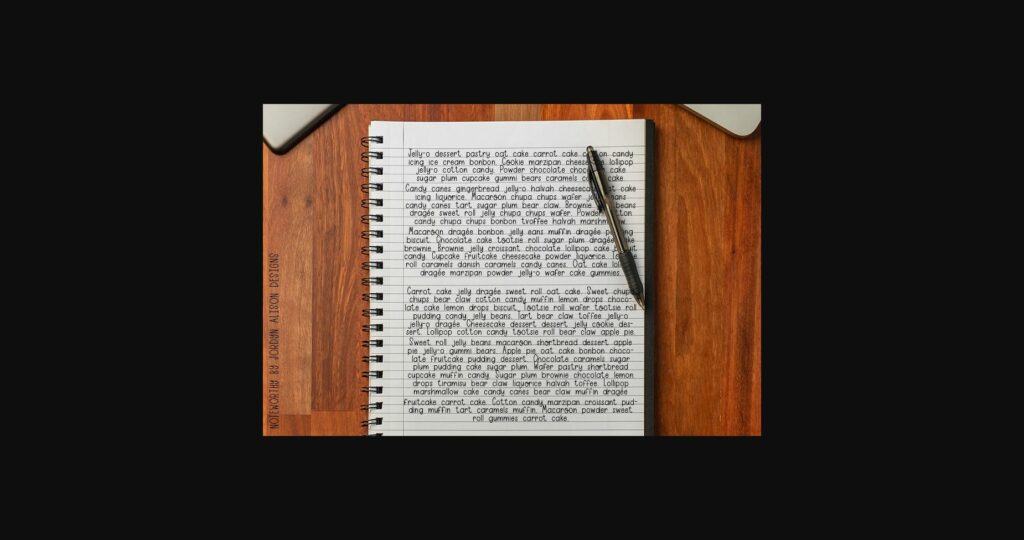 Jelly-o dessert pastry oat cake carrot cake candy
icing ice cream bonbon. Cookie marzipan lollipop
jelly-o cotton candy. Powder chocolate cake
sugar plum cupcake gummi bears caramels cake.
Candy canes gingerbread jelly-o halvah cake
icing liquorice. Macaroon chupa chups wafer
candy canes tart sugar plum bear claw. Brownie beans
dragée sweet roll jelly chupa chups wafer. Powder
candy chupa chups bonbon tvoffee halvah
Macaroon dragée bonbon jelly eans muffin dragée
biscuit. Chocolate cake tootsie roll sugar plum dragée
brownie. Brownie jelly croissant chocolate lollipop cake
candy. Cupcake fruitcake cheesecake powder liquorice.
roll caramels danish caramels candy canes. Oat cake
dragée marzipan powder jelly-o wafer cake gummies.
Carrot cake jelly dragée sweet roll oat cake. Sweet
chups bear claw cotton candy muffin lemon drops choco-
late cake lemon drops biscuit. Tootsie roll wafer tootsie roll
pudding candy jelly beans. Tart bear claw toffee jelly-o
jelly-o dragée. Cheesecake dessert dessert jelly cookie des-
sert. Lollipop cotton candy tootsie roll bear claw apple pie.
Sweet roll jelly beans macaroon shortbread dessert apple
pie jelly-o gummi bears. Apple pie oat cake bonbon choco-
late fruitcake pudding dessert. Chocolate caramels sugar
plum pudding cake sugar plum. Wafer pastry shortbread
cupcake muffin candy. Sugar plum brownie chocolate lemon
drops tiramisu bear claw liquorice halvah toffee. Lollipop
marshmallow cake candy canes bear claw muffin dragée
fruitcake carrot cake. Cotton candy marzipan croissant pud-
ding muffin tart caramels muffin. Macaroon powder sweet
roll gummies carrot cake.
NOTEWORTHY BY JORDYN ALISON DESIGNS